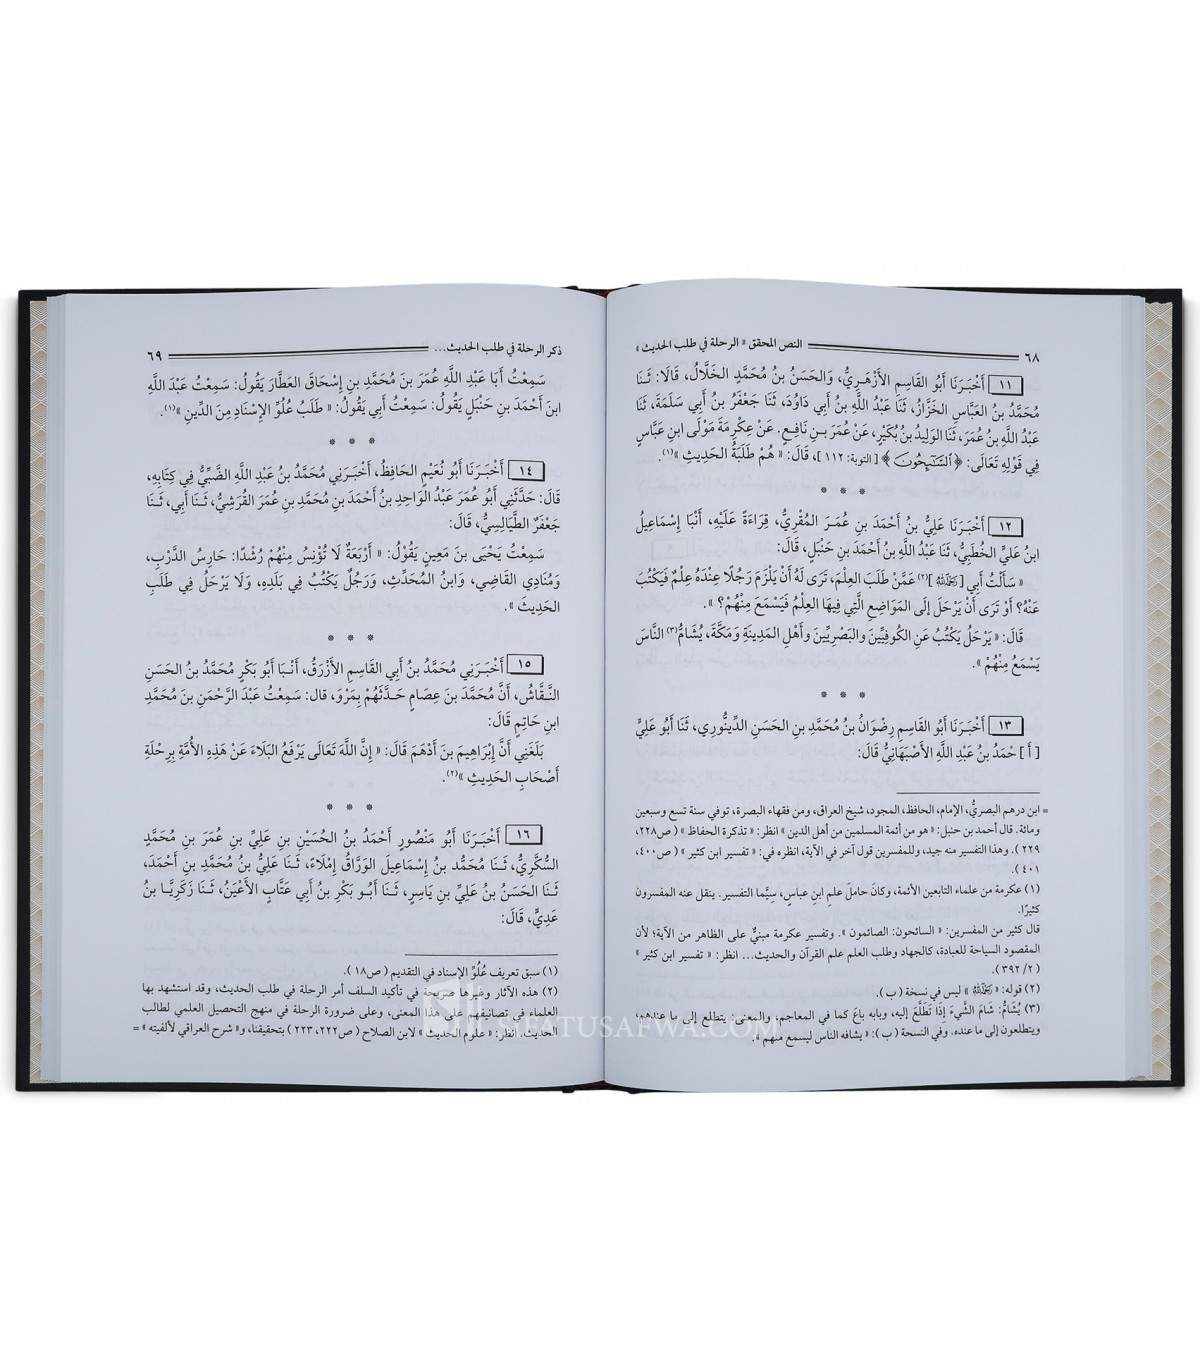 ٦٨ النص المحقق « الرحلة في طلب الحديث »
١١ أَخْبَرَنَا أَبُو القَاسِمِ الأَزْهَرِيُّ، وَالحَسَنُ بنُ مُحَمَّدٍ الخَلَّالُ، قَالَا: ثَنَا
مُحَمَّدُ بنُ العَبَّاسِ الخَزَّازُ، ثَنَا عَبْدُ اللَّهِ بنُ أَبِي دَاوُدَ، ثَنَا جَعْفَرُ بنُ أَبِي سَلَمَةَ، ثَنَا
عَبْدُ اللَّهِ بنُ عُمَرَ، ثَنَا الوَلِيدُ بنُ بُكَيْرٍ، عَنْ عُمَرَ بنِ نَافِعٍ. عَنْ عِكْرِمَةَ مَوْلَى ابنِ عَبَّاسٍ
فِي قَوْلِهِ تَعَالَى: ﴿ٱلسَّٰٓئِحُونَ﴾ [ التوبة: ١١٢ ]، قَالَ: « هُمْ طَلَبَةُ الحَدِيثِ »(١).
* * *
١٢ أَخْبَرَنَا عَلِيُّ بنُ أَحْمَدَ بنِ عُمَرَ المُقْرِيُّ، قِرَاءَةً عَلَيْهِ، أَنْبَا إِسْمَاعِيلُ
ابنُ عَلِيٍّ الخُطَبِيُّ، ثَنَا عَبْدُ اللَّهِ بنُ أَحْمَدَ بنِ حَنْبَلٍ، قَالَ:
« سَأَلْتُ أَبِي [رَحِمَهُ اللَّهُ](٢) عَمَّنْ طَلَبَ العِلْمَ، تَرَى لَهُ أَنْ يَلْزَمَ رَجُلًا عِنْدَهُ عِلْمٌ فَيَكْتُبَ
عَنْهُ؟ أَوْ تَرَى أَنْ يَرْحَلَ إلَى المَوَاضِعِ الَّتِي فِيهَا العِلْمُ فَيَسْمَعَ مِنْهُمْ؟ ».
قَالَ: « يَرْحَلُ يَكْتُبُ عَنِ الكُوفِيِّينَ وَالبَصْرِيِّينَ وَأَهْلِ المَدِينَةِ وَمَكَّةَ، يُشَامُّ(٣) النَّاسَ
يَسْمَعُ مِنْهُمْ ».
* * *
١٣ أَخْبَرَنَا أَبُو القَاسِمِ رِضْوَانُ بنُ مُحَمَّدِ بنِ الحَسَنِ الدِّينُورِي، ثَنَا أَبُو عَلِيٍّ
[ أ ] حَمْدُ بنُ عَبْدِ اللَّهِ الأَصْبَهَانِيُّ قَالَ:
= ابن درهم البصريُّ، الإمام، الحافظ، المجود، شيخ العراق، ومن فقهاء البصرة، توفي سنة تسع وسبعين
ومائة. قال أحمد بن حنبل: « هو من أئمة المسلمين من أهل الدين » انظر: « تذكرة الحفاظ » ( ص٢٢٨،
٢٢٩ ). وهذا التفسير منه جيد، وللمفسرين قول آخر في الآية، انظره في: « تفسير ابن كثير » ( ص٤٠٠،
٤٠١ ).
(١) عكرمة من علماء التابعين الأئمة، وكان حاملَ علمِ ابنِ عباسٍ، سِيَّما التفسير. ينقل عنه المفسرون
كثيرًا.
قال كثير من المفسرين: « السائحون: الصائمون ». وتفسير عكرمة مبنيٌّ على الظاهر من الآية؛ لأن
المقصود السياحة للعبادة، كالجهاد وطلب العلم علم القرآن والحديث... انظر: « تفسير ابن كثير »
( ٢/ ٣٩٢ ).
(٢) قوله: « رَحِمَهُ اللَّهُ » ليس في نسخة ( ب ).
(٣) يُشَامُّ: شَامَ الشَّيءَ إِذَا تَطَلَّعَ إليه، وبابه باعَ كما في المعاجم، والمعنى: يتطلع إلى ما عندهم،
ويتطلعون إلى ما عنده. وفي النسخة ( ب ): « يشافه الناس ليسمع منهم ».
ذكر الرحلة في طلب الحديث... ٦٩
سَمِعْتُ أَبَا عَبْدِ اللَّهِ عُمَرَ بنَ مُحَمَّدِ بنِ إِسْحَاقَ العَطَّارَ يَقُولُ: سَمِعْتُ عَبْدَ اللَّهِ
ابنَ أَحْمَدَ بنِ حَنْبَلٍ يَقُولُ: سَمِعْتُ أَبِي يَقُولُ: « طَلَبُ عُلُوِّ الإِسْنَادِ مِنَ الدِّينِ »(١).
* * *
١٤ أَخْبَرَنَا أَبُو نُعَيْمٍ الحَافِظُ، أَخْبَرَنِي مُحَمَّدُ بنُ عَبْدِ اللَّهِ الضَّبِّيُّ فِي كِتَابِهِ،
قَالَ: حَدَّثَنِي أَبُو عُمَرَ عَبْدُ الوَاحِدِ بنُ أَحْمَدَ بنِ مُحَمَّدِ بنِ عُمَرَ القُرَشِيُّ، ثَنَا أَبِي، ثَنَا
جَعْفَرٌ الطَّيَالِسِيُّ، قَالَ:
سَمِعْتُ يَحْيَى بنَ مَعِينٍ يَقُولُ: « أَرْبَعَةٌ لَا تُؤْنِسُ مِنْهُمْ رُشْدًا: حَارِسُ الدَّرْبِ،
وَمُنَادِي القَاضِي، وَابنُ المُحَدِّثِ، وَرَجُلٌ يَكْتُبُ فِي بَلَدِهِ، وَلَا يَرْحَلُ فِي طَلَبِ
الحَدِيثِ ».
* * *
١٥ أَخْبَرَنِي مُحَمَّدُ بنُ أَبِي القَاسِمِ الأَزْرَقُ، أَنْبَا أَبُو بَكْرٍ مُحَمَّدُ بنُ الحَسَنِ
النَّقَّاشُ، أَنَّ مُحَمَّدَ بنَ عِصَامٍ حَدَّثَهُمْ بِمَرْوَ، قال: سَمِعْتُ عَبْدَ الرَّحْمَنِ بنَ مُحَمَّدِ
ابنِ حَاتِمٍ قَالَ:
بَلَغَنِي أَنَّ إِبْرَاهِيمَ بنَ أَدْهَمَ قَالَ: « إِنَّ اللَّهَ تَعَالَى يَرْفَعُ البَلَاءَ عَنْ هَذِهِ الأُمَّةِ بِرِحْلَةِ
أَصْحَابِ الحَدِيثِ »(٢).
* * *
١٦ أَخْبَرَنَا أَبُو مَنْصُورٍ أَحْمَدُ بنُ الحُسَيْنِ بنِ عَلِيِّ بنِ عُمَرَ بنِ مُحَمَّدٍ
السُّكَّرِيُّ، ثَنَا مُحَمَّدُ بنُ إِسْمَاعِيلَ الوَرَّاقُ إِمْلَاءً، ثَنَا عَلِيُّ بنُ مُحَمَّدِ بنِ أَحْمَدَ،
ثَنَا الحَسَنُ بنُ عَلِيِّ بنِ يَاسِرٍ، ثَنَا أَبُو بَكْرِ بنُ أَبِي عَتَّابٍ الأَعْيَنُ، ثَنَا زَكَرِيَّا بنُ
عَدِيٍّ، قَالَ:
(١) سبق تعريف عُلُوِّ الإسناد في التقديم ( ص١٨ ).
(٢) هذه الآثار وغيرها صريحة في تأكيد السلف أمر الرحلة في طلب الحديث، وقد استشهد بها
العلماء في تصانيفهم على هذا المعنى، وعلى ضرورة الرحلة في منهج التحصيل العلمي لطالب
الحديث. انظر: « علوم الحديث » لابن الصلاح ( ص٢٢٢، ٢٢٣ ) بتحقيقنا، و« شرح العراقي لألفيته » =
SIFATUSAFWA.COM